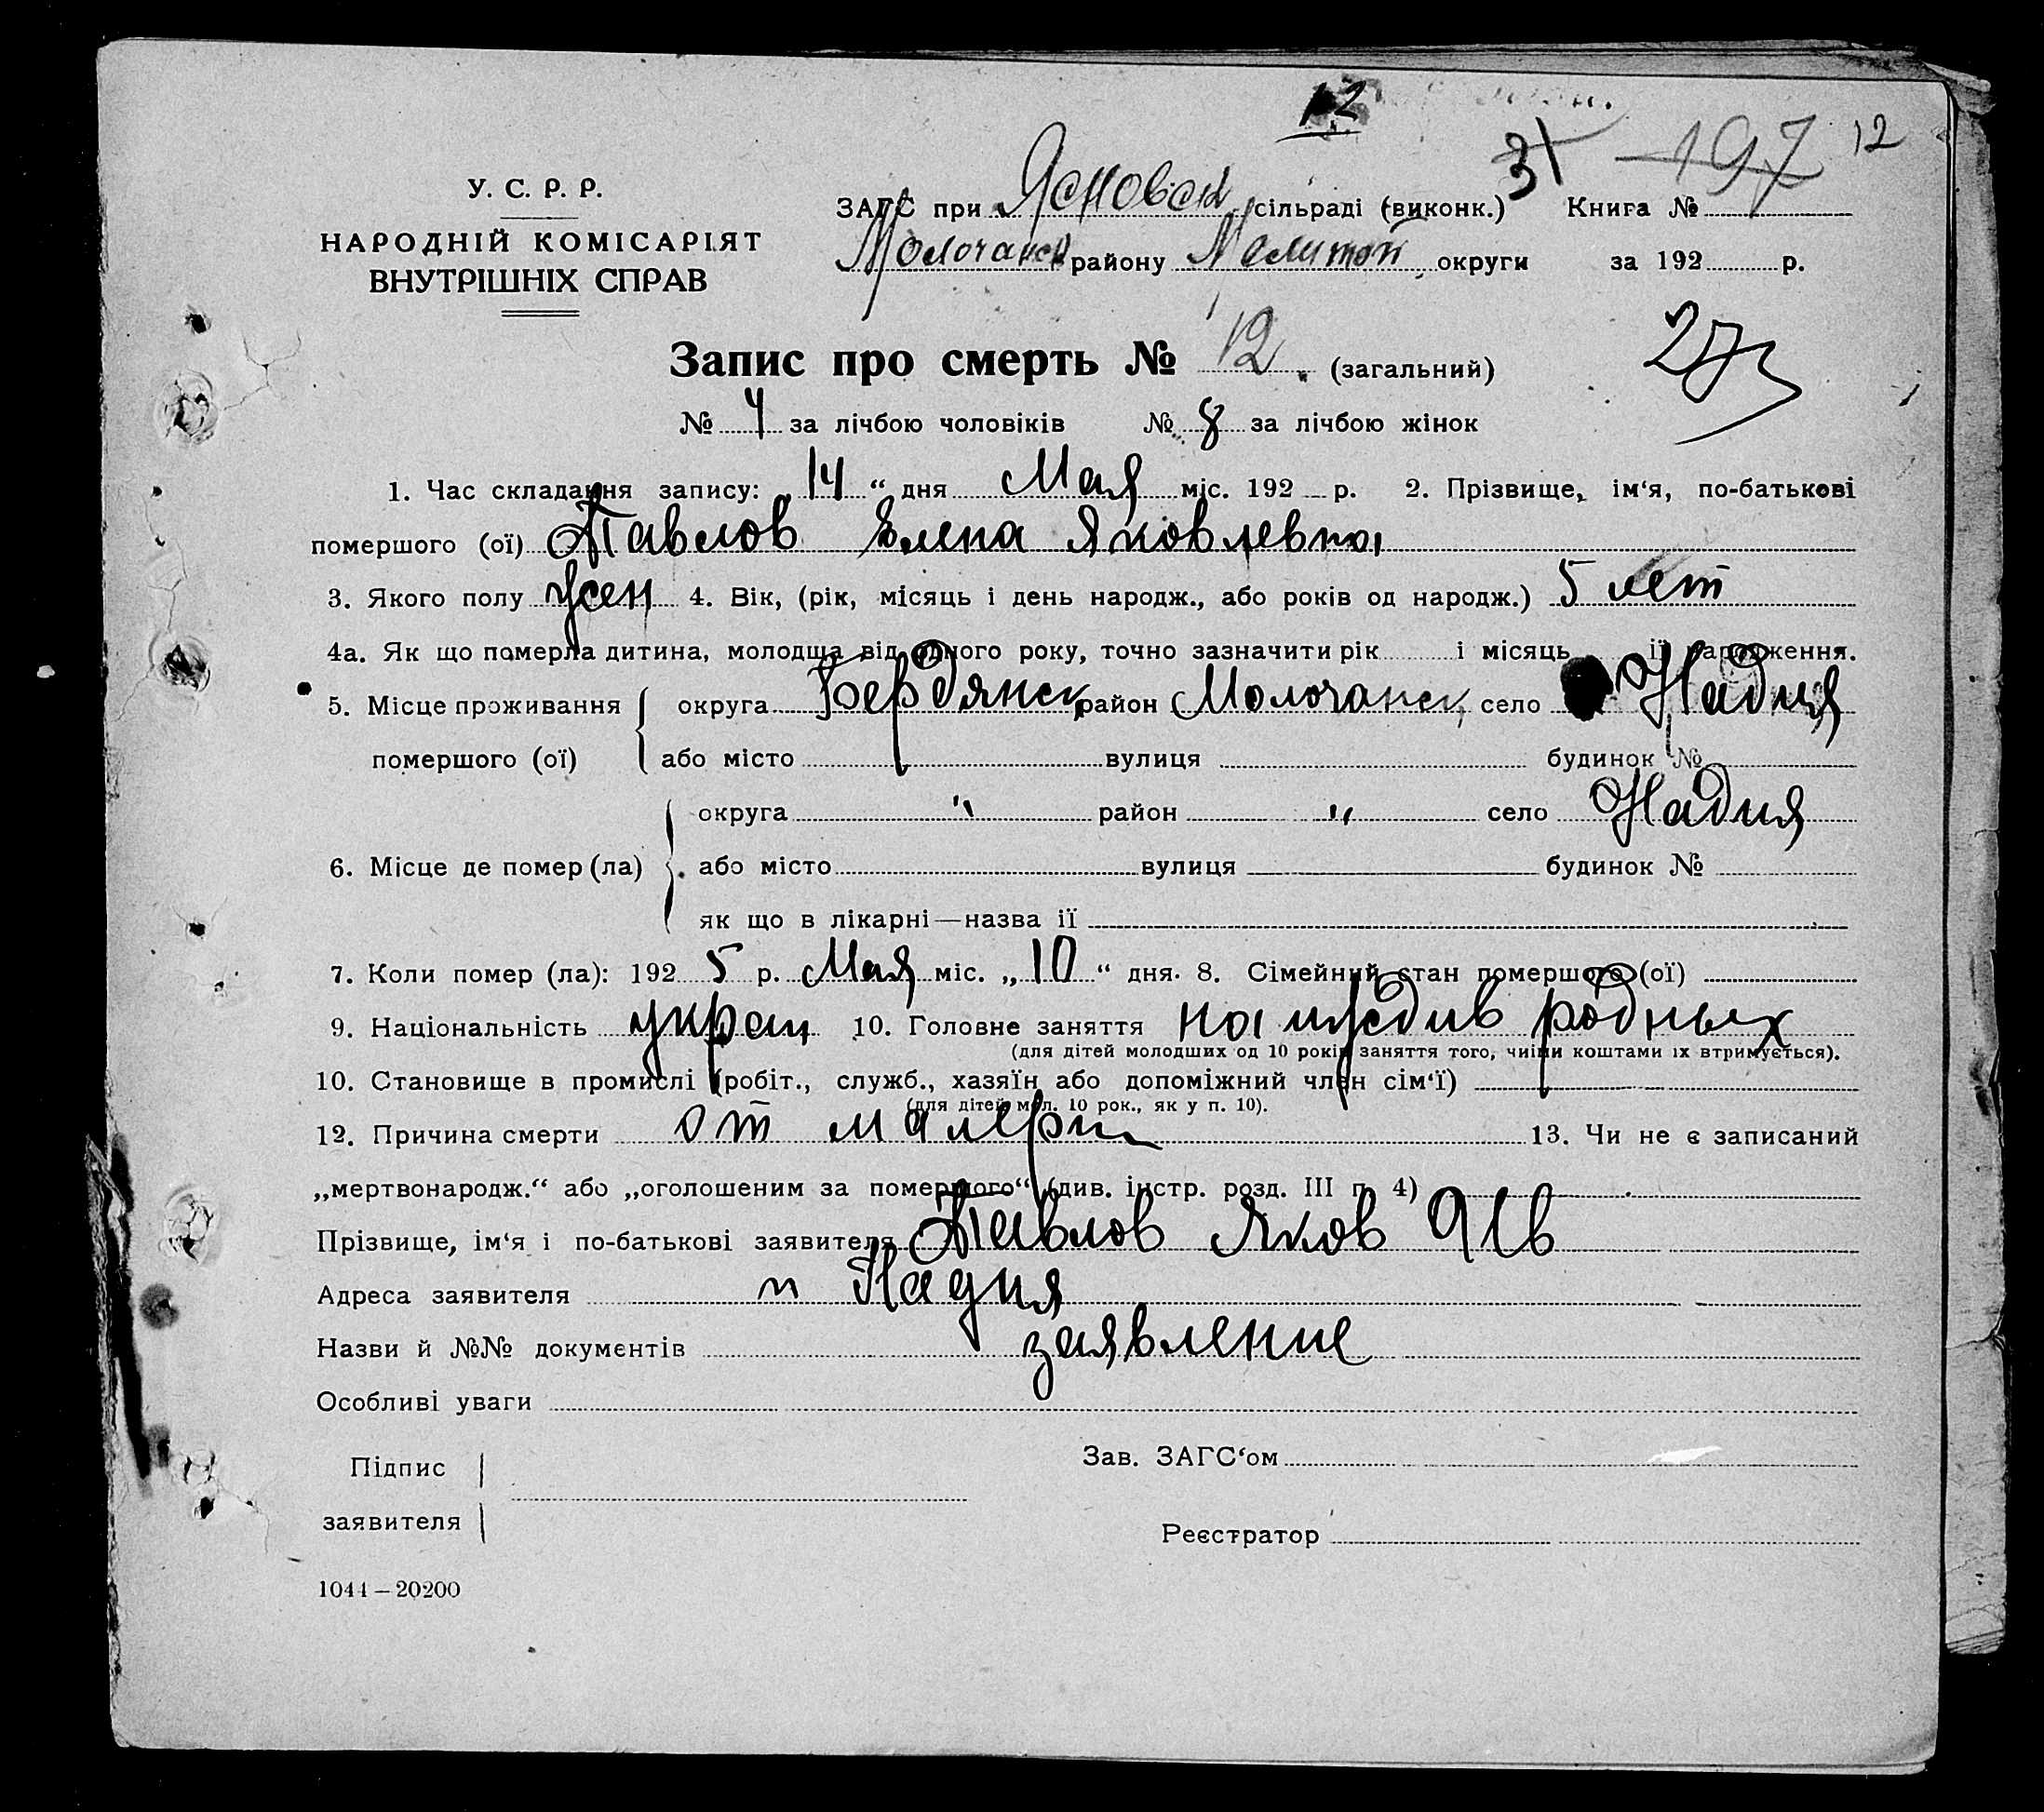 12
31 197 12
У. С. Р. Р.
НАРОДНІЙ КОМІСАРІЯТ
ВНУТРІШНІХ СПРАВ
ЗАГС при Ясновск сільраді (виконк.) Книга №
Молочанск району Мелитоп округи за 192 р.
Запис про смерть № 12. (загальний)
273
№ 4 за лічбою чоловіків № 8 за лічбою жінок
1. Час складання запису: „14“ дня Мая міс. 192 р. 2. Прізвище, ім‘я, по-батькові
померщого (ої) Павлов Елена Яковлевна
3. Якого полу жен 4. Вік, (рік, місяць і день народж., або років од народж.) 5 лет
4а. Як що померла дитина, молодща від одного року, точно зазначити рік і місяць її народження.
5. Місце проживання округа Бердянск район Молочанск село Надия
померщого (ої) або місто вулиця будинок №
округа " район " село Надия
6. Місце де помер (ла) або місто вулиця будинок №
як що в лікарні—назва її
7. Коли помер (ла): 192 5 р. Мая міс. „10“ дня. 8. Сімейний стан померщого (ої)
9. Національність украин 10. Головне заняття на иждив родных
(для дітей молодших од 10 років заняття того, чиїми коштами їх втримується).
10. Становище в промислі (робіт., служб., хазяїн або допоміжний член сім‘ї)
(для дітей мол. 10 рок., як у п. 10).
12. Причина смерти от малерии 13. Чи не є записаний
„мертвонародж.“ або „оголошеним за померщого“ (див. інстр. розд. III п. 4)
Прізвище, ім‘я і по-батькові заявителя Павлов Яков
Адреса заявителя п Надия
Назви й №№ документів заявление
Особливі уваги
Підпис
заявителя
Зав. ЗАГС‘ом
Реєстратор
1044—20200